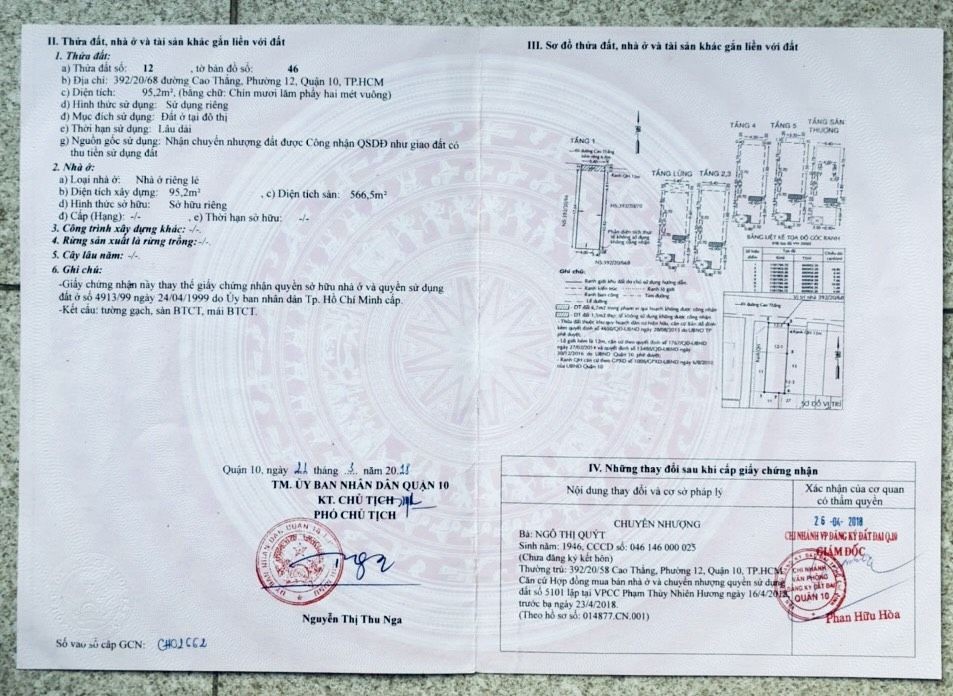 II. Thửa đất, nhà ở và tài sản khác gắn liền với đất
1. Thửa đất:
a) Thửa đất số: 12 , tờ bản đồ số: 46
b) Địa chỉ: 392/20/68 đường Cao Thắng, Phường 12, Quận 10, TP.HCM
c) Diện tích: 95,2m², (bằng chữ: Chín mươi lăm phẩy hai mét vuông)
d) Hình thức sử dụng: Sử dụng riêng
đ) Mục đích sử dụng: Đất ở tại đô thị
e) Thời hạn sử dụng: Lâu dài
g) Nguồn gốc sử dụng: Nhận chuyển nhượng đất được Công nhận QSDĐ như giao đất có
thu tiền sử dụng đất
2. Nhà ở:
a) Loại nhà ở: Nhà ở riêng lẻ
b) Diện tích xây dựng: 95,2m² , c) Diện tích sàn: 566,5m²
d) Hình thức sở hữu: Sở hữu riêng
đ) Cấp (Hạng): -/- , e) Thời hạn sở hữu: -/-
3. Công trình xây dựng khác: -/-.
4. Rừng sản xuất là rừng trồng:-/-.
5. Cây lâu năm: -/-
6. Ghi chú:
-Giấy chứng nhận này thay thế giấy chứng nhận quyền sở hữu nhà ở và quyền sử dụng
đất ở số 4913/99 ngày 24/04/1999 do Ủy ban nhân dân Tp. Hồ Chí Minh cấp.
-Kết cấu: tường gạch, sàn BTCT, mái BTCT.
Quận 10, ngày 21 tháng 3 năm 2018
TM. ỦY BAN NHÂN DÂN QUẬN 10
KT. CHỦ TỊCH
PHÓ CHỦ TỊCH
Nguyễn Thị Thu Nga
Số vào sổ cấp GCN: CH02662
III. Sơ đồ thửa đất, nhà ở và tài sản khác gắn liền với đất
TẦNG 1
TẦNG LỬNG
TẦNG 2,3
TẦNG 4
TẦNG 5
TẦNG SÂN
THƯỢNG
Ranh QH 12m
NS.392/20/66
NS.392/20/70
NS.392/20/68
BẢNG LIỆT KÊ TỌA ĐỘ GÓC RANH
Vị trí nhà 392/20/68
Ghi chú:
Ranh giới khu đất do chủ sử dụng hướng dẫn.
Ranh kiến trúc
Ranh lộ giới
Ranh ban công
Tim đường
Lề đường
SƠ ĐỒ VỊ TRÍ
IV. Những thay đổi sau khi cấp giấy chứng nhận
Nội dung thay đổi và cơ sở pháp lý
Xác nhận của cơ quan
có thẩm quyền
CHUYỂN NHƯỢNG
Bà: NGÔ THỊ QUÝT
Sinh năm: 1946, CCCD số: 046 146 000 025
(Chưa đăng ký kết hôn)
Thường trú: 392/20/58 Cao Thắng, Phường 12, Quận 10, TP.HCM
Căn cứ Hợp đồng mua bán nhà ở và chuyển nhượng quyền sử dụng
đất số 5101 lập tại VPCC Phạm Thùy Nhiên Hương ngày 16/4/2018,
trước bạ ngày 23/4/2018.
(Theo hồ sơ số: 014877.CN.001)
26 -04- 2018
CHI NHÁNH VP ĐĂNG KÝ ĐẤT ĐAI Q.10
GIÁM ĐỐC
CHI NHÁNH
VĂN PHÒNG
ĐĂNG KÝ ĐẤT ĐAI
QUẬN 10
Phan Hữu Hòa